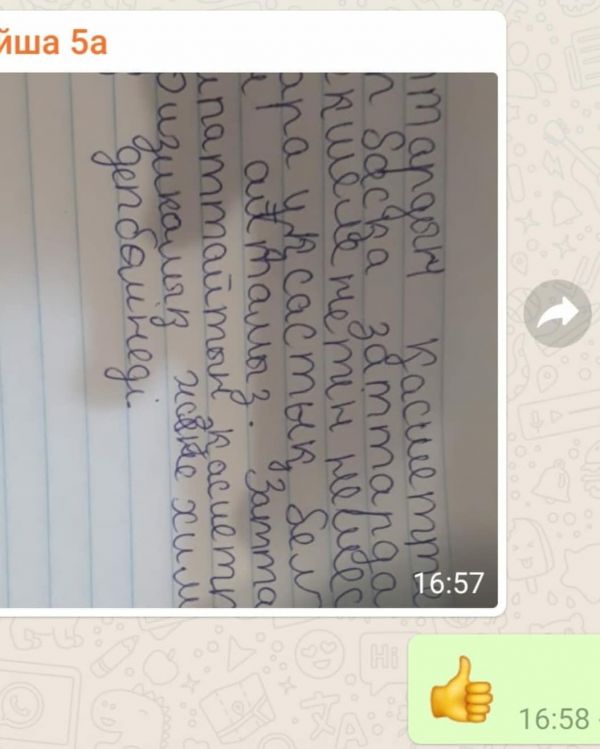 йша 5а
тардың қасиетте
п басқа заттарда
кшеленетін немес
ара ұқсастық бел
атаймыз. Затта
ипаттайтын қасиетт
физикалық және хими
деп бөлінеді.
16:57
16:58
Hi